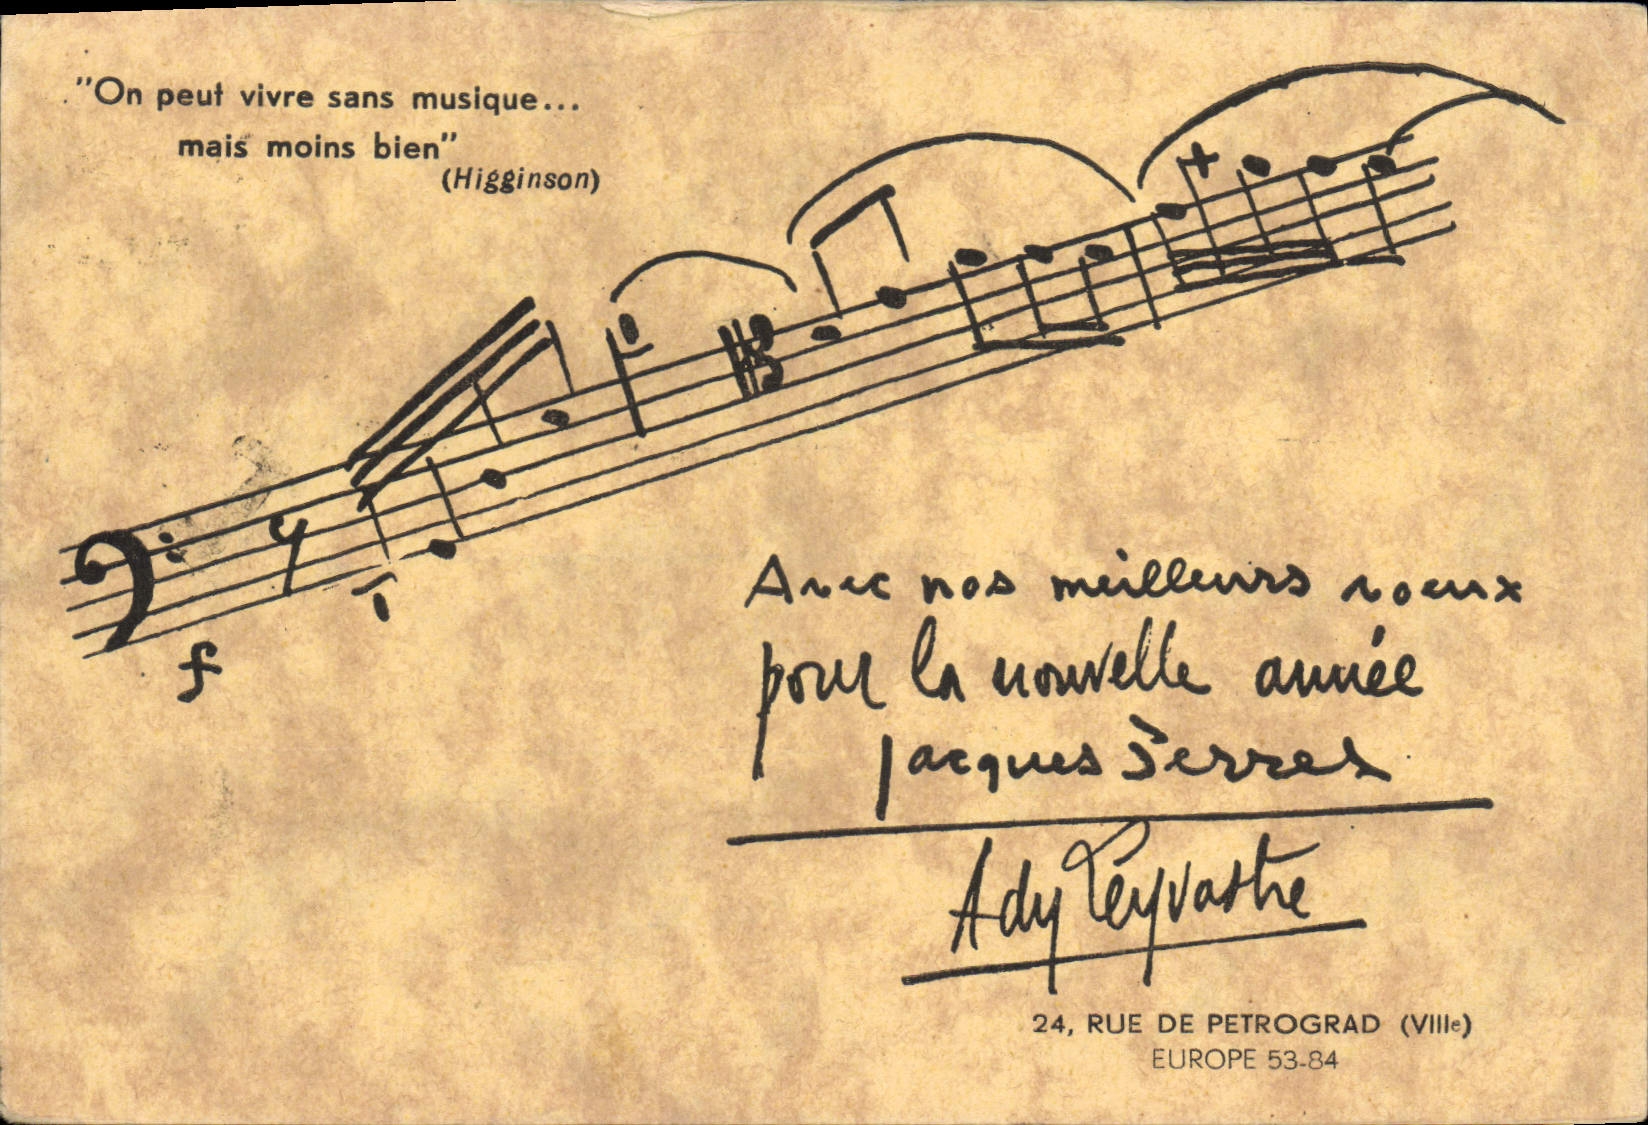 "On peut vivre sans musique...
mais moins bien"
(Higginson)
f
Avec nos meilleurs voeux
pour la nouvelle année
Jacques Serres
Ady Leyvastre
24, RUE DE PETROGRAD (VIIIe)
EUROPE 53-84